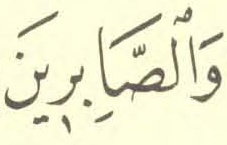 وَٱلصَّٰبِرِينَ